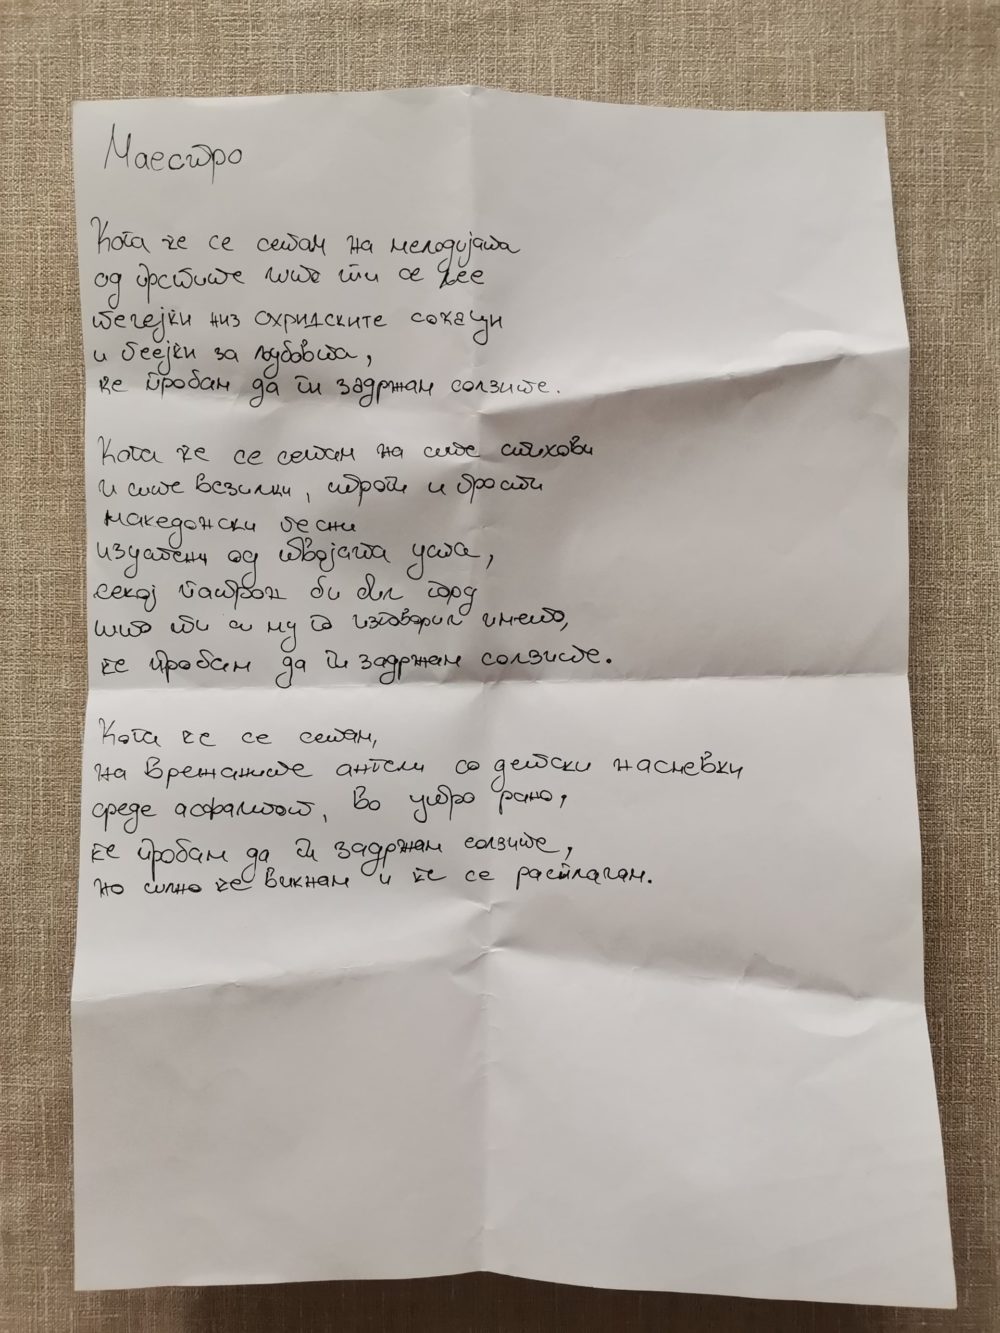 Маестро
Кога ќе се сетам на мелодијата
од прстите што ти се лее
течејќи низ охридските сокаци
и пеејќи за љубовта,
ќе пробам да ги задржам солзите.
Кога ќе се сетам на сите стихови
и сите везилки, строги и прости
македонски песни
издишени од твојата уста,
секој патрон би бил горд
што ти си му го изговорил името,
ќе пробам да ги задржам солзите.
Кога ќе се сетам,
на врежаните ангели со детски насмевки
среде асфалтот, во утро рано,
ќе пробам да ги задржам солзите,
но силно ќе викнам и ќе се расплачам.